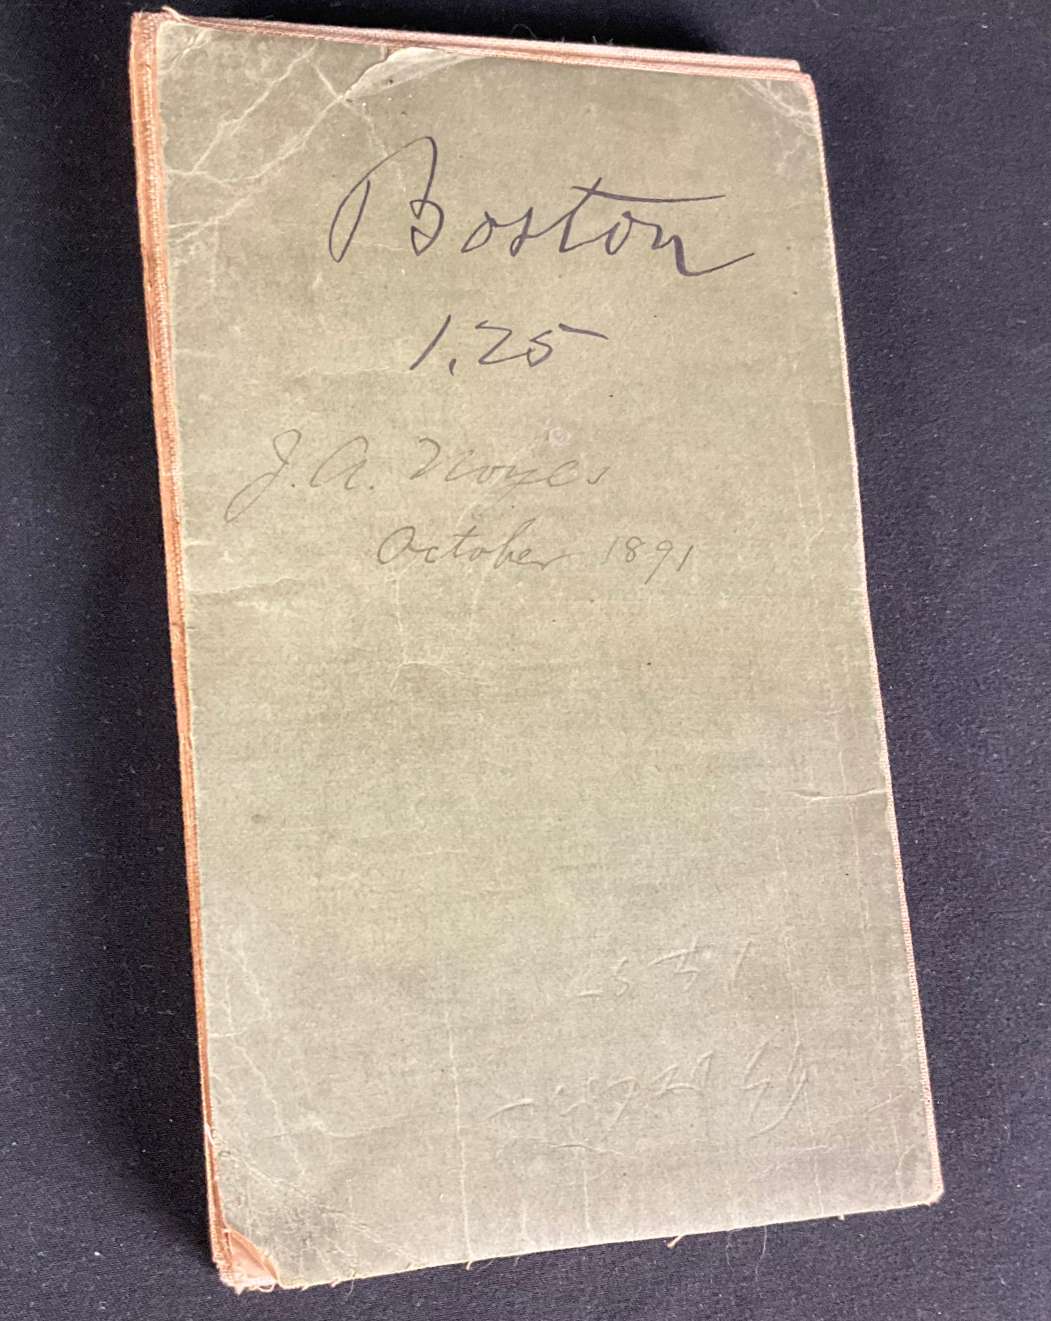 Boston
1.25
J. A. Noyes
October 1891